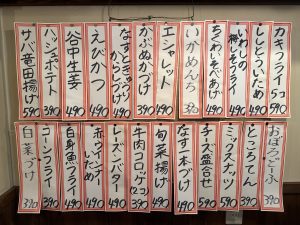 カキフライ 5コ 590
ししとういため 390
いわしの梅しそフライ 490
ちくわいそべあげ 490
いかめんち 390
エシャレット 490
かぶぬかづけ 390
なすとぎゅうのからしづけ 490
えびかつ 490
谷中生姜 490
ハッシュポテト 390
サバ竜田揚げ 590
おぼろどーふ 390
ところてん 390
ミックスナッツ 390
チーズ盛合せ 590
なす一本づけ 490
旬菜揚げ 490
牛肉コロッケ(2コ) 390
レーズンバター 490
赤ウインナーいため 490
白身魚フライ 490
コーンフライ 390
白菜づけ 390